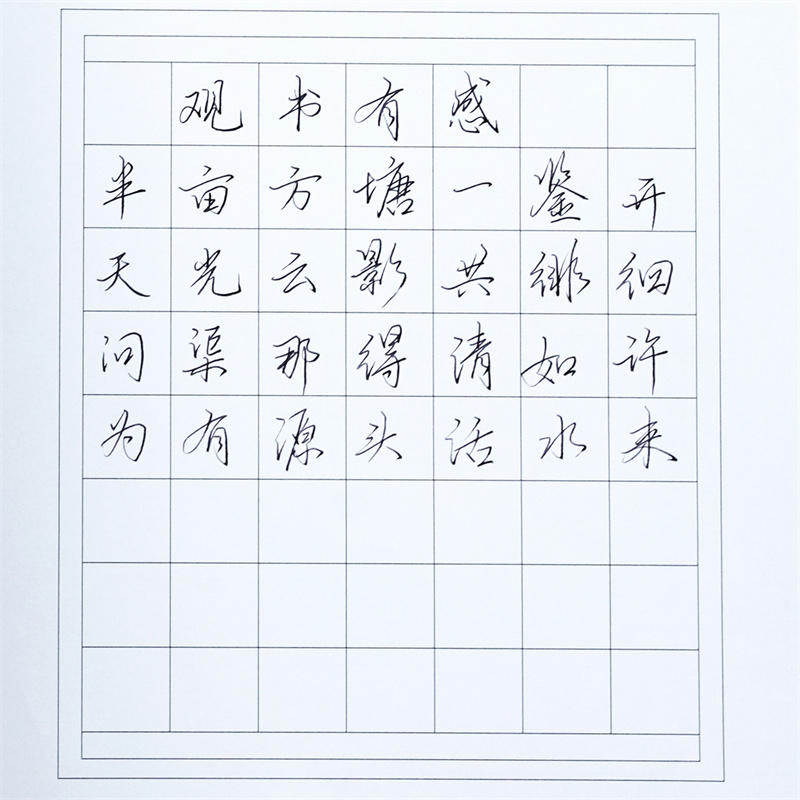 观书有感
半亩方塘一鉴开
天光云影共徘徊
问渠那得清如许
为有源头活水来